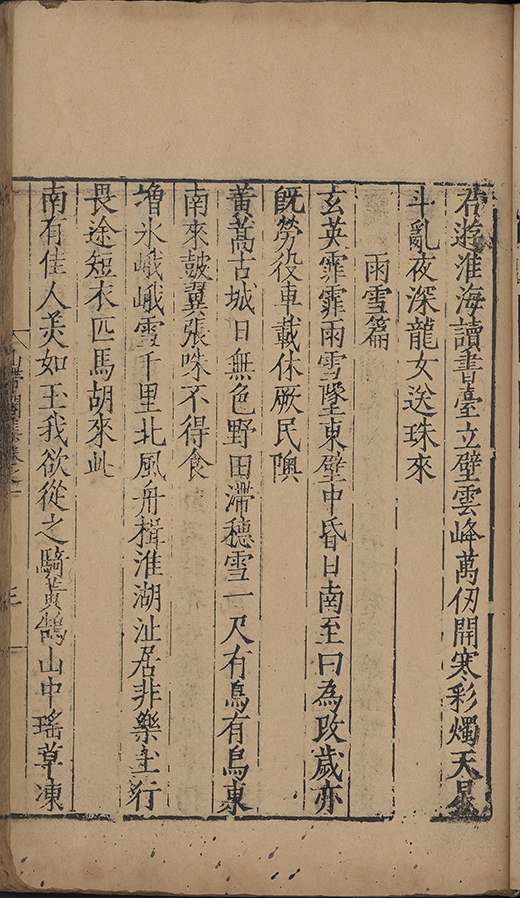 君遊淮海讀書臺立壁雲峰萬仞開寒彩燭天星
斗亂夜深龍女送珠來
雨雪篇
玄英霏霏雨雪墜東壁中昏日南至曰為改歲亦
既勞役車載休厥民隩
黃蒿古城日無色野田滯穗雪一尺有鳥有鳥東
南來皷翼張咮不得食
增氷峨峨雪千里北風舟楫淮湖沚居非樂土行
畏途短衣匹馬胡來此
南有佳人美如玉我欲從之騎黃鵠山中瑤草凍
山帶閣集卷之一
三